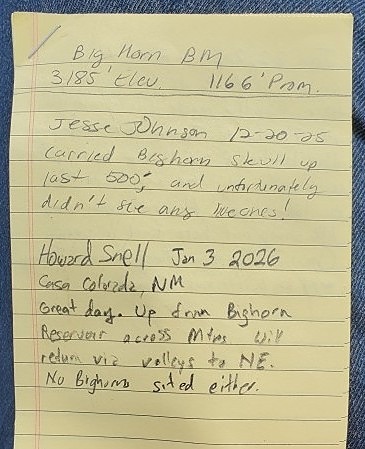 Big Horn BM
3185' Elev. 1166' Prom.
Jesse Johnson 12-20-25
carried Bighorn skull up
last 500', and unfortunately
didn't see any live ones!
Howard Snell Jan 3 2026
Casa Colorada, NM
Great day. Up from Bighorn
Reservoir across Mtns Will
return via valleys to NE.
No Bighorns sited either.